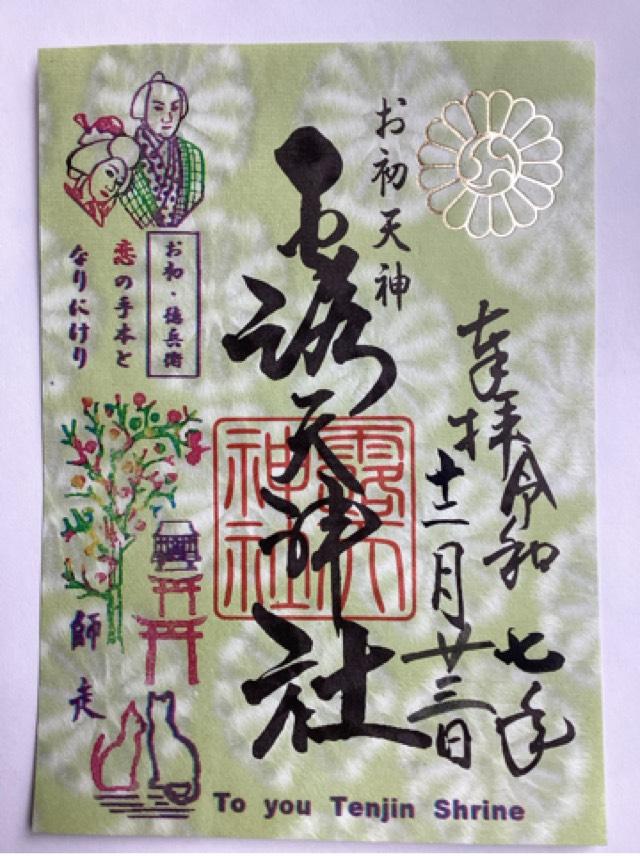 奉拝令和七年
十二月廿三日
お初天神
露天神社
露天神社
お初・徳兵衛
恋の手本と
なりにけり
師走
To you Tenjin Shrine